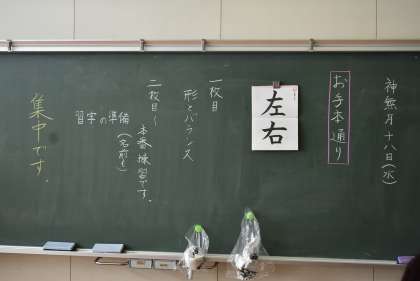 神無月十八日(水)
お手本通り
左右
一枚目
形とバランス
二枚目〜
本番練習です。
(名前も)
習字の準備
集中です。